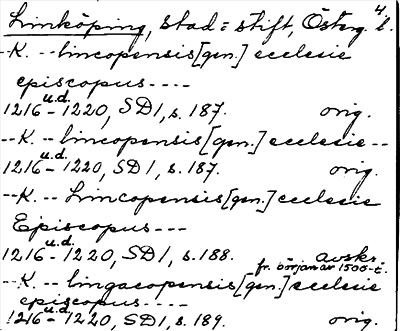 4.
Linköping, stad = stift, Österg. l.
--K. -- lincopensis [gen.] ecclesie
episcopus ----
u.d.
1216 - 1220, SD 1, s. 187. orig.
--K. -- lincopensis [gen.] ecclesie --
u.d.
1216 - 1220, SD 1, s. 187. orig.
--K. -- Limcopensis [gen.] ecclesie
Episcopus ---
u.d.
1216 - 1220, SD 1, s. 188. avskr.
fr. början av 1500-t.
--K. -- lingacopensis [gen.] ecclesie
episcopus ----
u.d.
1216 - 1220, SD 1, s. 189. orig.